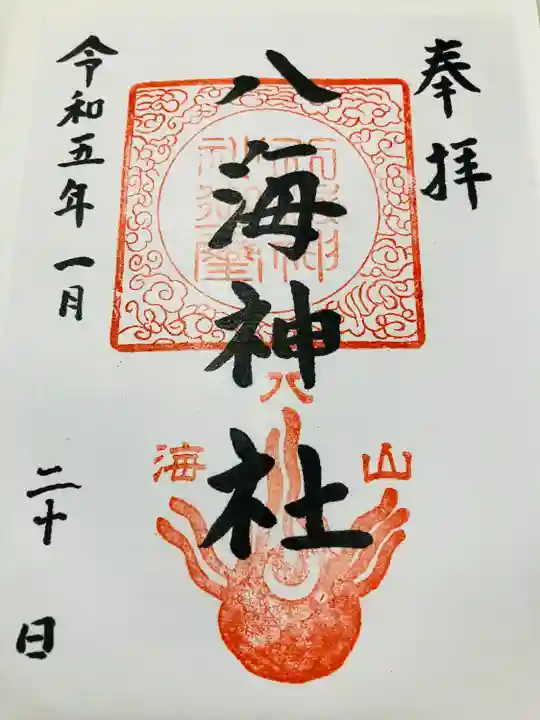 奉拝
八海神社
八
海
山
令和五年一月二十日